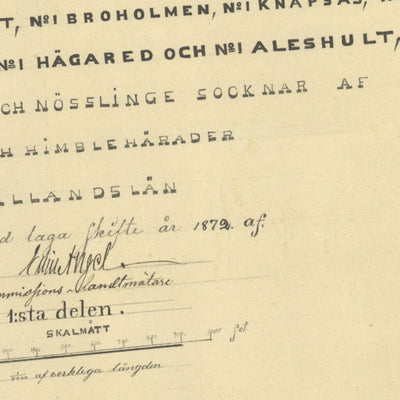 T, №1 BROHOLMEN, №1 KNAPSÅS,
№1 HÄGARED OCH №1 ALESHULT,
CH NÖSSLINGE SOCKNAR AF
H HIMBLEHÄRADER
LLANDSLÄN
d laga skifte år 1872. af.
mmissions-Landtmätare
1:sta delen.
SKALMÅTT
fot
af verkliga längden